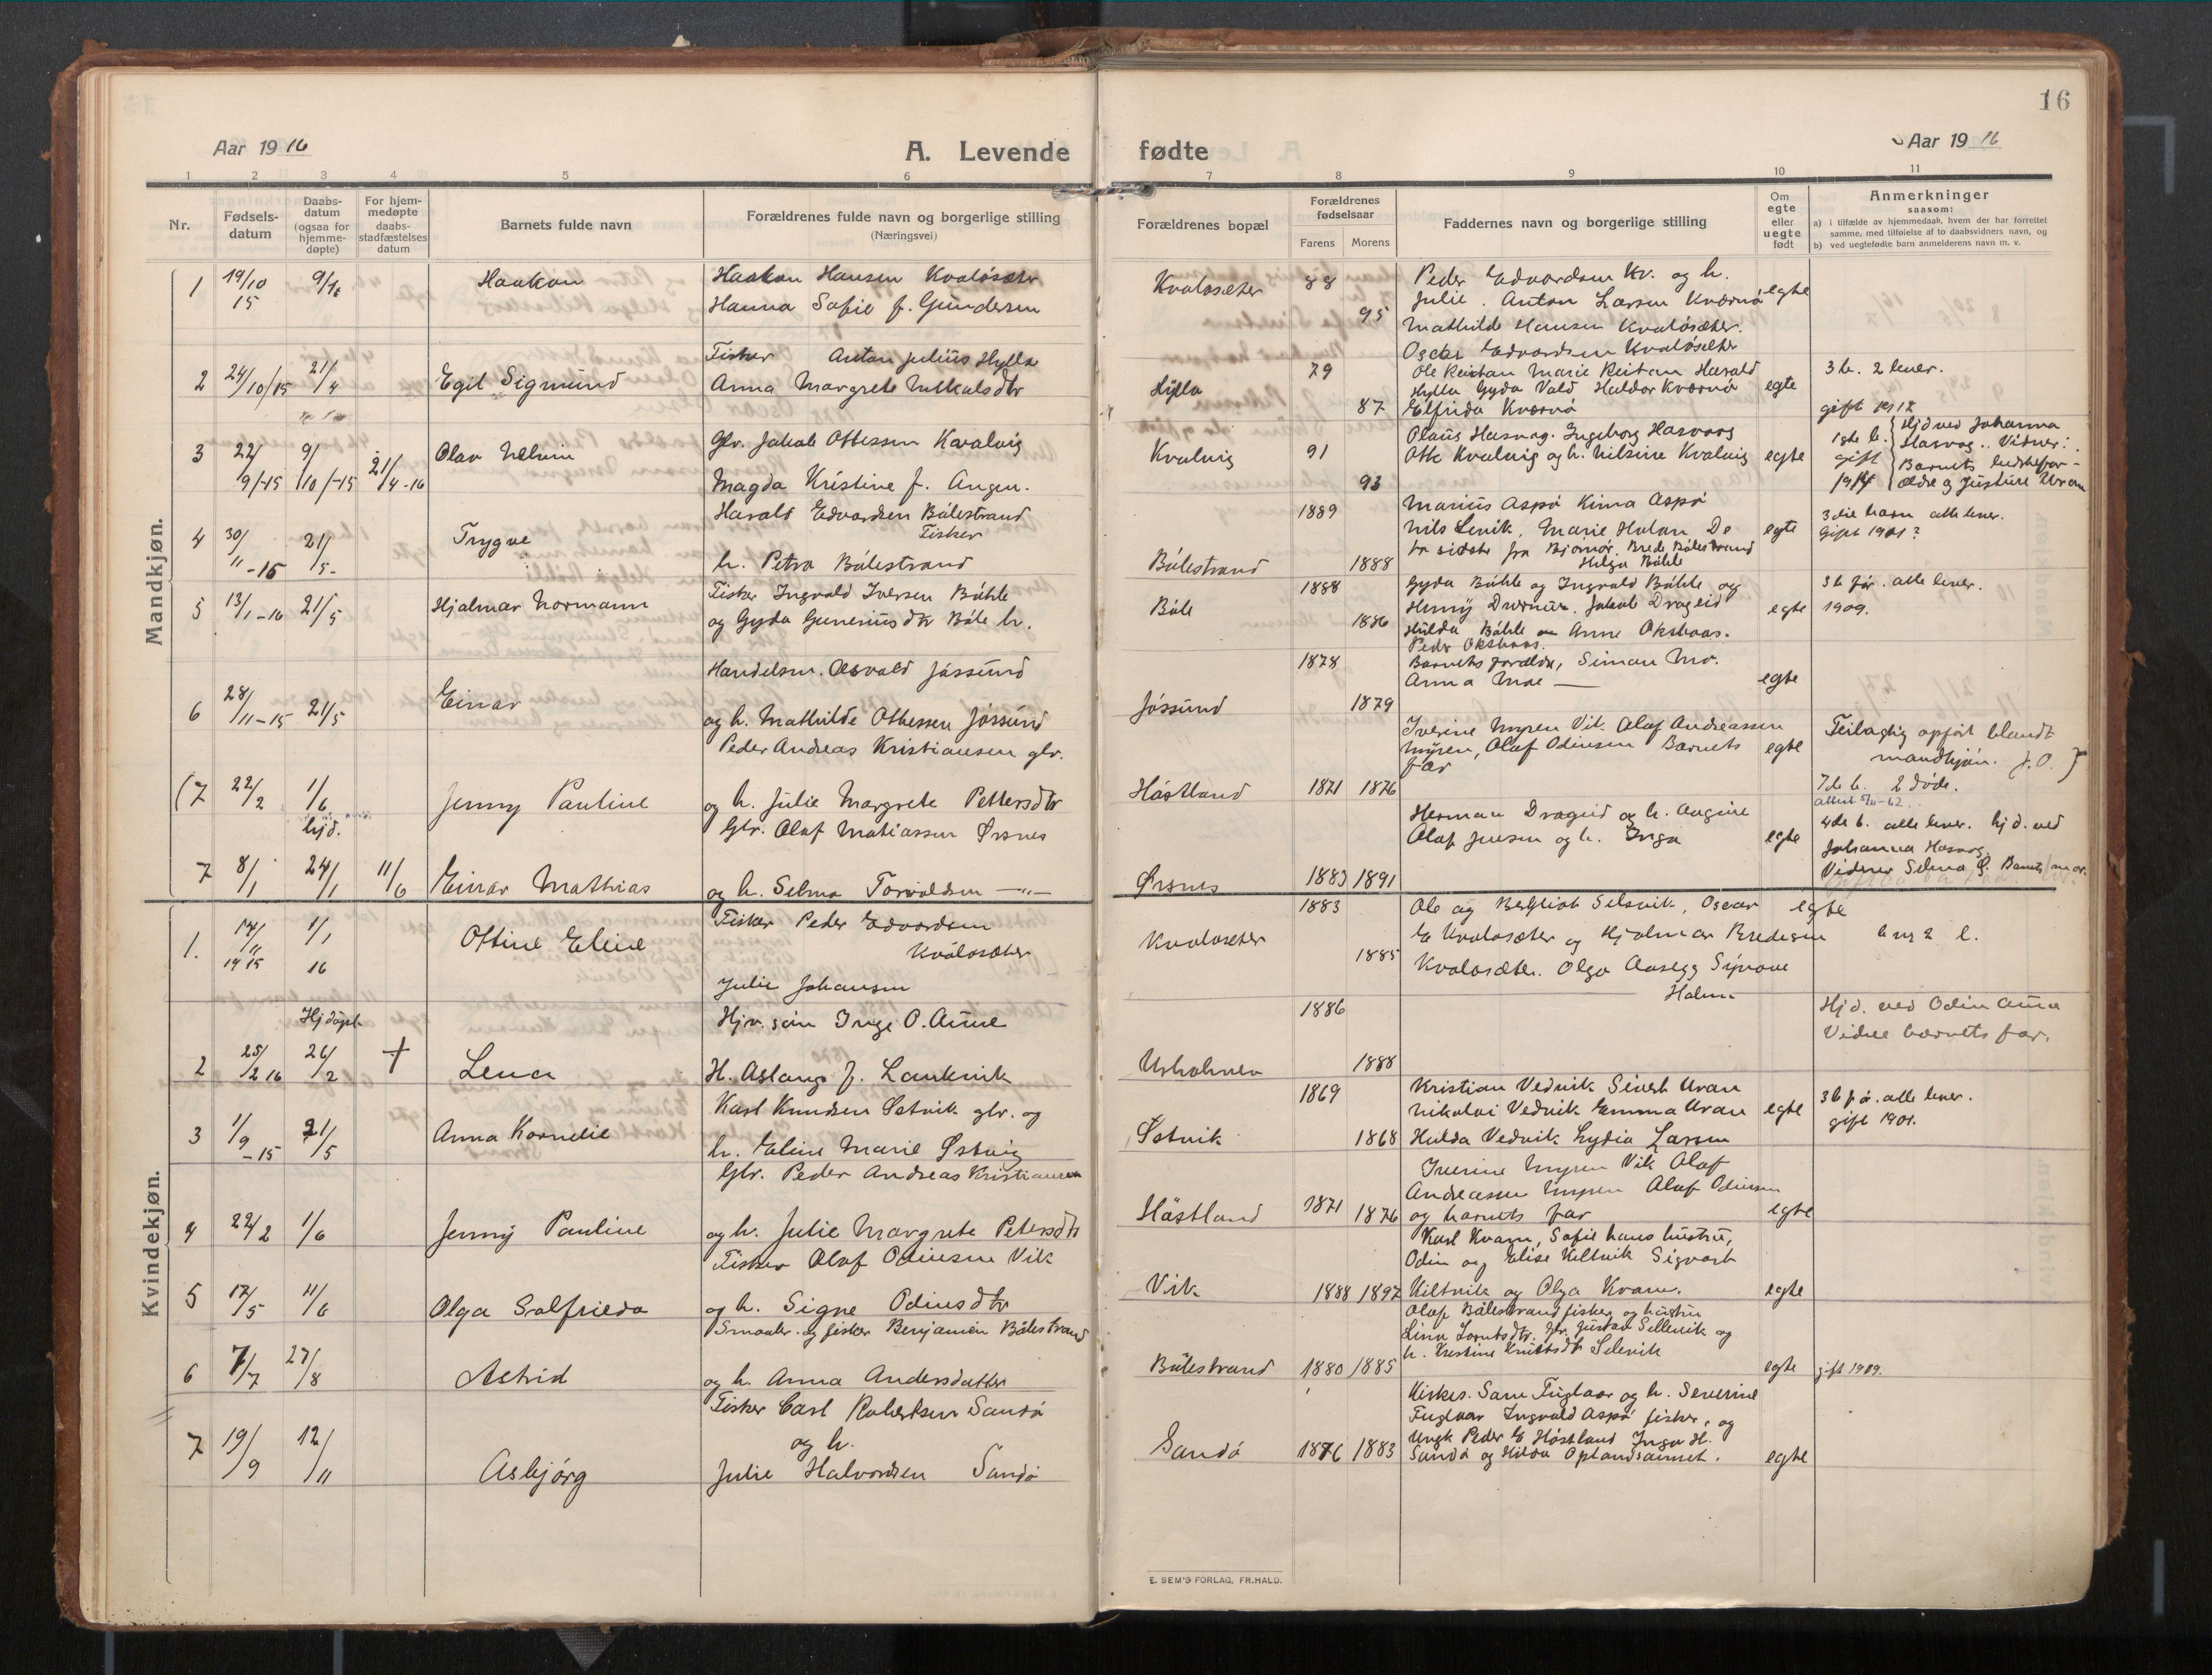 16
Aar 19 16
A. Levende
fødte
Aar 19 16
1 2 3 4 5 6 7 8 9 10 11
Nr.
Fødsels-
datum
Daabs-
datum
(ogsaa for
hjemme-
døpte)
For hjem-
medøpte
daabs-
stadfæstelses
datum
Barnets fulde navn
Forældrenes fulde navn og borgerlige stilling
(Næringsvei)
Forældrenes bopæl
Forældrenes
fødselsaar
Farens Morens
Faddernes navn og borgerlige stilling
Om
egte
eller
uegte
født
Anmerkninger
saasom:
a) i tilfælde av hjemmedaab, hvem der har forrettet
samme, med tilføielse af to daabsvidners navn, og
b) ved uegtefødte barn anmelderens navn m. v.
Mandkjøn.
1 19/10 15 9/1 Haakon
Haakon Hansen Kvaløsæter
Hanna Sofie f. Gundersen
Kvaløsæter 88 95
Peder Edvardsen Kv. og h.
Julie. Anton Larsen Kværnø
Mathilde Hansen Kvaløsæter.
Oscar Edvardsen Kvaløsæter
egte
2 24/10/15 21/4 Egil Sigmund
Fisker Anton Julius Hylla
Anna Margrete
Hylla 79 87
Ole Reistan Marie Reistan Harald
Hylla Gyda Vald Haldor Kværnø
Elfrida Kværnø
egte
3 b. 2 lever.
gift 1912
3 22/9-15 9/10-15 21/4-16 Olav
Gbr. Jakob Ottessen Kvalvig
Magda Kristine f. Angen.
Kvalvig 91 93
Olaus Hasvag. Ingeborg Hasvaag
Otte Kvalvig og h. Nilsine Kvalvig
egte
1ste b. gift 1914
Hjd ved Johanna
Hasvag. Vidner:
Barnets
ældre og Justine Uran
4 30/11-15 21/5- Trygve
Harald Edvardsen Bålestrand
Fisker
h. Petra Bålestrand
Bålestrand 1889 1888
Marius Aspø Kima Aspø
Nils Lenik, Marie Holan De
to sidste fra Bjørnør. Brede Bålestrand
Helga Båhle
egte
3die barn alle lever.
Gift 1901?
5 13/1-16 21/5 Hjalmar Normann
Fisker Ingvald Iversen Båhle
og Gyda Guneriusdtr Båle h.
Båle 1888 1886
Gyda Båhle og Ingvald Båhle og
Henny . Jakob Drageid
Hulda Båhle Anne Oksvaas.
Peder Oksvaas.
egte
3 b før. alle lever.
1909.
6 28/11-15 21/5 Einar
Handelsm. Osvald Jøssund
og h. Mathilde Ottessen Jøssund
Jøssund 1878 1879
Barnets forældre, Simon Mo.
Anna Moe —
egte
(7 22/2 1/6 Jenny Pauline
Peder Andreas Kristiansen gbr.
og h. Julie Margrete Pettersdtr
Håstland 1871 1876
Iverine Myren Vik. Olaf Andreassen
Myren, Olaf Odinsen Barnets
far
egte
Feilagtig opført blandt
mandkjøn. J.O. )
7de b. 2 døde.
hjd.
7 8/1 24/1 11/6 Einar Mathias
Gbr. Olaf Matiassen Ørsnes
og h. Selma Torvaldsen —"—
Ørsnes 1883 1891
Herman Drageid og h. Augine
Olaf Jensen og h. Inga
egte
4de b. alle lever. hjd. ved
Johanna Hasvag.
Vidner Selma Ø. Barnets mor.
Kvindekjøn.
1. 14/11 1915 1/1 16 Ottine Eline
Fisker Peder Edvardsen
Kvaløsæter
Julie Johansen
Kvaløsæter 1883 1885
Ole og Bergliot Selsvik, Oscar
E Kvaløsæter og Hjalmar Bredesen
Kvaløsæter. Olga Aasegg
Holm
egte
b nr 2 l.
2 25/2 16 Hjdøpt 26/2 + Lena
Hjv. søn Inge O. Aune
H. Aslaug f. Laukvik
Urholmen 1886 1888
Hjd. ved Odin Aune
Vidne barnets far.
3 1/9-15 21/5 Anna Kornelie
Karl Knudsen Østvik gbr. og
h. Eline Marie Østvig
Østvik 1869 1868
Kristian Vedvik Sivert Uran
Nikolai Vedvik Emma Uran
Hulda Vedvik Lydia Larsen
egte
3 b før. alle lever.
gift 1901.
4 22/2 1/6 Jenny Pauline
Gbr. Peder Andreas Kristiansen
og h. Julie Margrete Petersdtr
Håstland 1871 1876
Iverine Myren Vik Olaf
Andreasen Myren Olaf Odinsen
og barnets far
egte
5 17/5 11/6 Olga Solfrieda
Fisker Olaf Odinsen Vik
og h. Signe Odinsdtr
Vik 1888 1897
Karl Kvam, Sofie hans hustru,
Odin og Elise Kiltvik Sigvart
Kiltvik og Olga Kvam.
egte
6 7/7 27/8 Astrid
Smaabr. og fisker Benjamin Bålestrand
og h. Anna Andersdatter
Bålestrand 1880 1885
Olaf Bålestrand fisker og hustru
Lina Lorntsdtr. gbr. Gustav Sellevik og
h. Kristine Selevik
egte
gift 1909.
7 19/9 12/11 Asbjørg
Fisker Carl Robertsen Sandø
og h.
Julie Halvordsen Sandø
Sandø 1876 1883
Kirkes. Sam Fuglaar og h. Severine
Fuglaar Ingvald Aspø fisker, og
Ungk Peder E Håstland Inga H.
Sandø og Hilda .
egte
E. SEM'S FORLAG, FR.HALD.